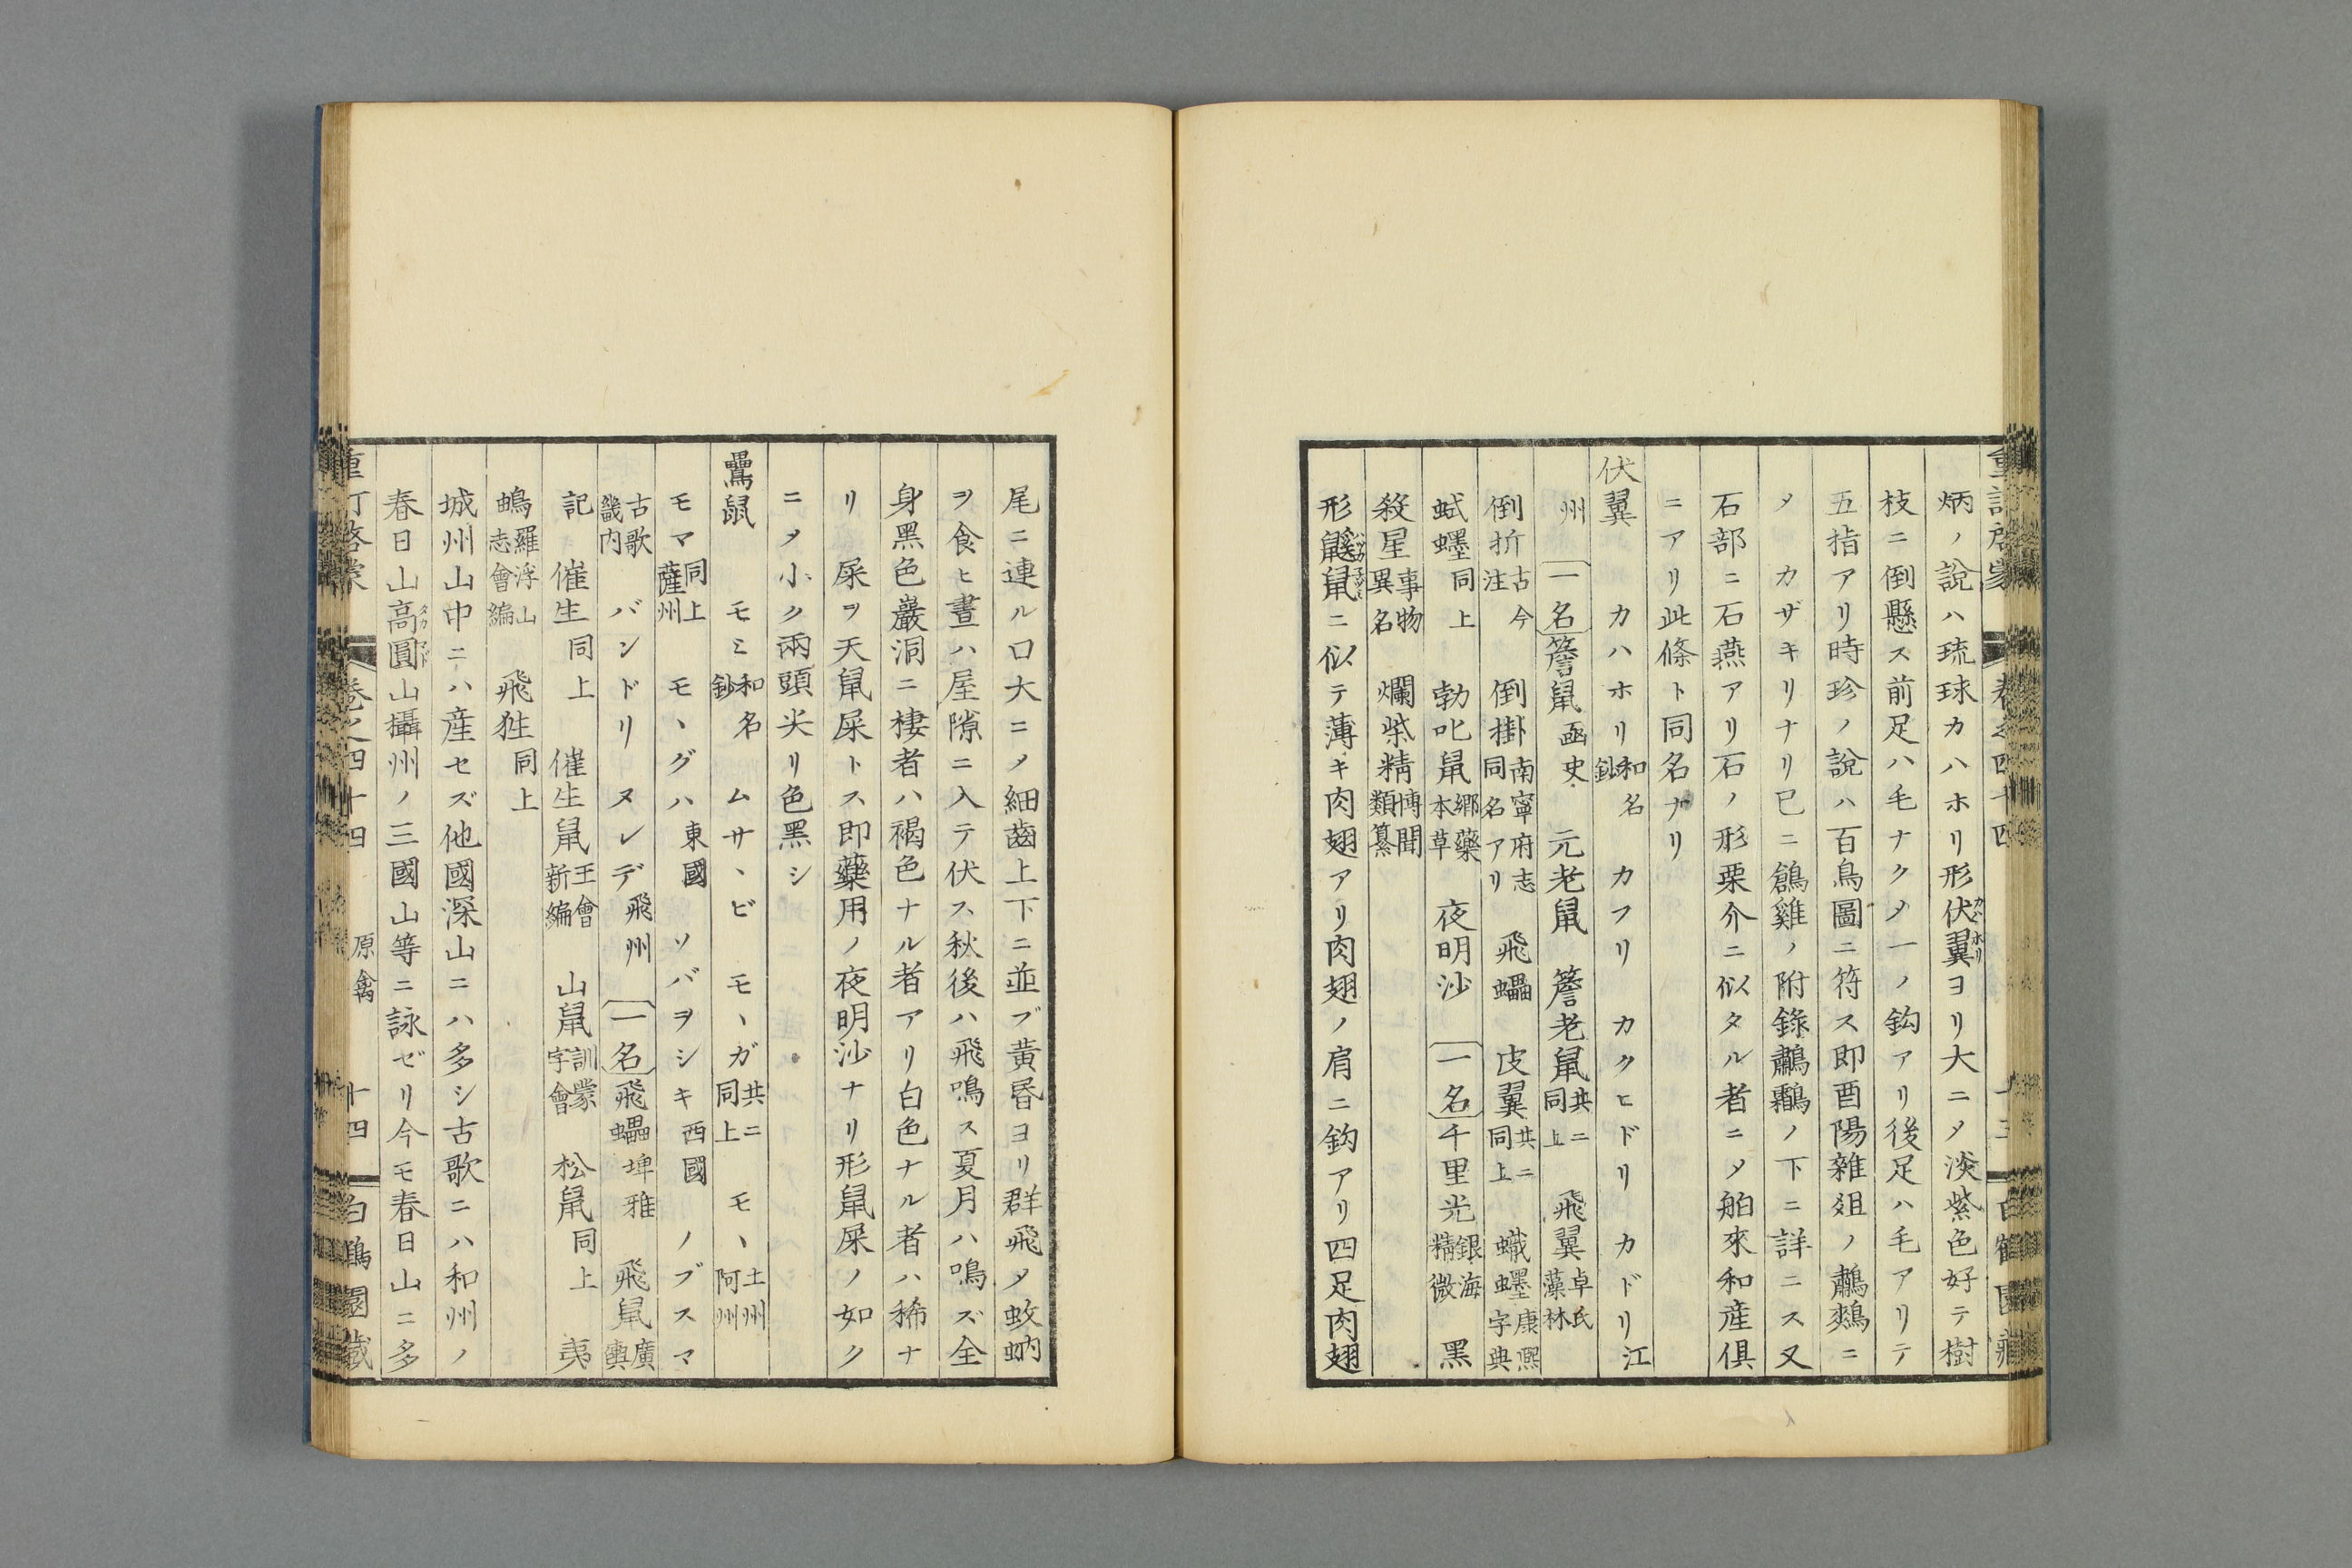 炳ノ說ハ琉球カハホリ形伏翼ヨリ大ニメ淡紫色好テ樹
枝ニ倒懸ス前足ハ毛ナクメ一ノ鈎アリ後足ハ毛アリテ
五指アリ時珍ノ說ハ百鳥圖ニ符ス即酉陽雜俎ノ鷫鷞ニ
メカザキリナリ已ニ鶬雞ノ附錄鷫鷞ノ下ニ詳ニス又
石部ニ石燕アリ石ノ形栗介ニ似タル者ニメ舶來和産俱
ニアリ此條ト同名ナリ
伏翼 カハホリ和名鈔 カフリ カクヒドリ カドリ江
州 一名簷鼠函史 元老鼠 簷老鼠共ニ同上 飛翼卓氏藻林
倒折古今注 倒掛南寧府志同名アリ 飛蠝 皮翼共ニ同上 蟙䘃康熙字典
蚮䘃同上 勃叱鼠鄉藥本草 夜明沙 一名千里光銀海精微 黑
殺星事物異名 爛柴精博聞類纂
形鼷鼠ニ似テ薄キ肉翅アリ肉翅ノ肩ニ鈎アリ四足肉翅
尾ニ連ル口大ニメ細齒上下ニ並ブ黃昏ヨリ群飛メ蚊蚋
ヲ食ヒ晝ハ屋隙ニ入テ伏ス秋後ハ飛鳴ス夏月ハ鳴ズ全
身黑色巖洞ニ棲者ハ褐色ナル者アリ白色ナル者ハ稀ナ
リ 屎ヲ天鼠屎トス即藥用ノ夜明沙ナリ形鼠屎ノ如ク
ニメ小ク兩頭尖リ色黑シ
鸓鼠 モミ和名鈔 ムサヽビ モヽガ共ニ同上 モヽ土州阿州
モマ同上薩州 モヽグハ東國 ソバヲシキ西國 ノブスマ
古歌畿内 バンドリ ヌレデ飛州 一名飛蠝埤雅 飛鼠廣輿
記 催生同上 催生鼠王會新編 山鼠訓蒙字會 松鼠同上 夷
鴺羅浮山志會編 飛狌同上
城州山中ニハ産セズ他國深山ニハ多シ古歌ニハ和州ノ
春日山高圓山攝州ノ三國山等ニ詠ゼリ今モ春日山ニ多
卷之四十四 原禽 十四